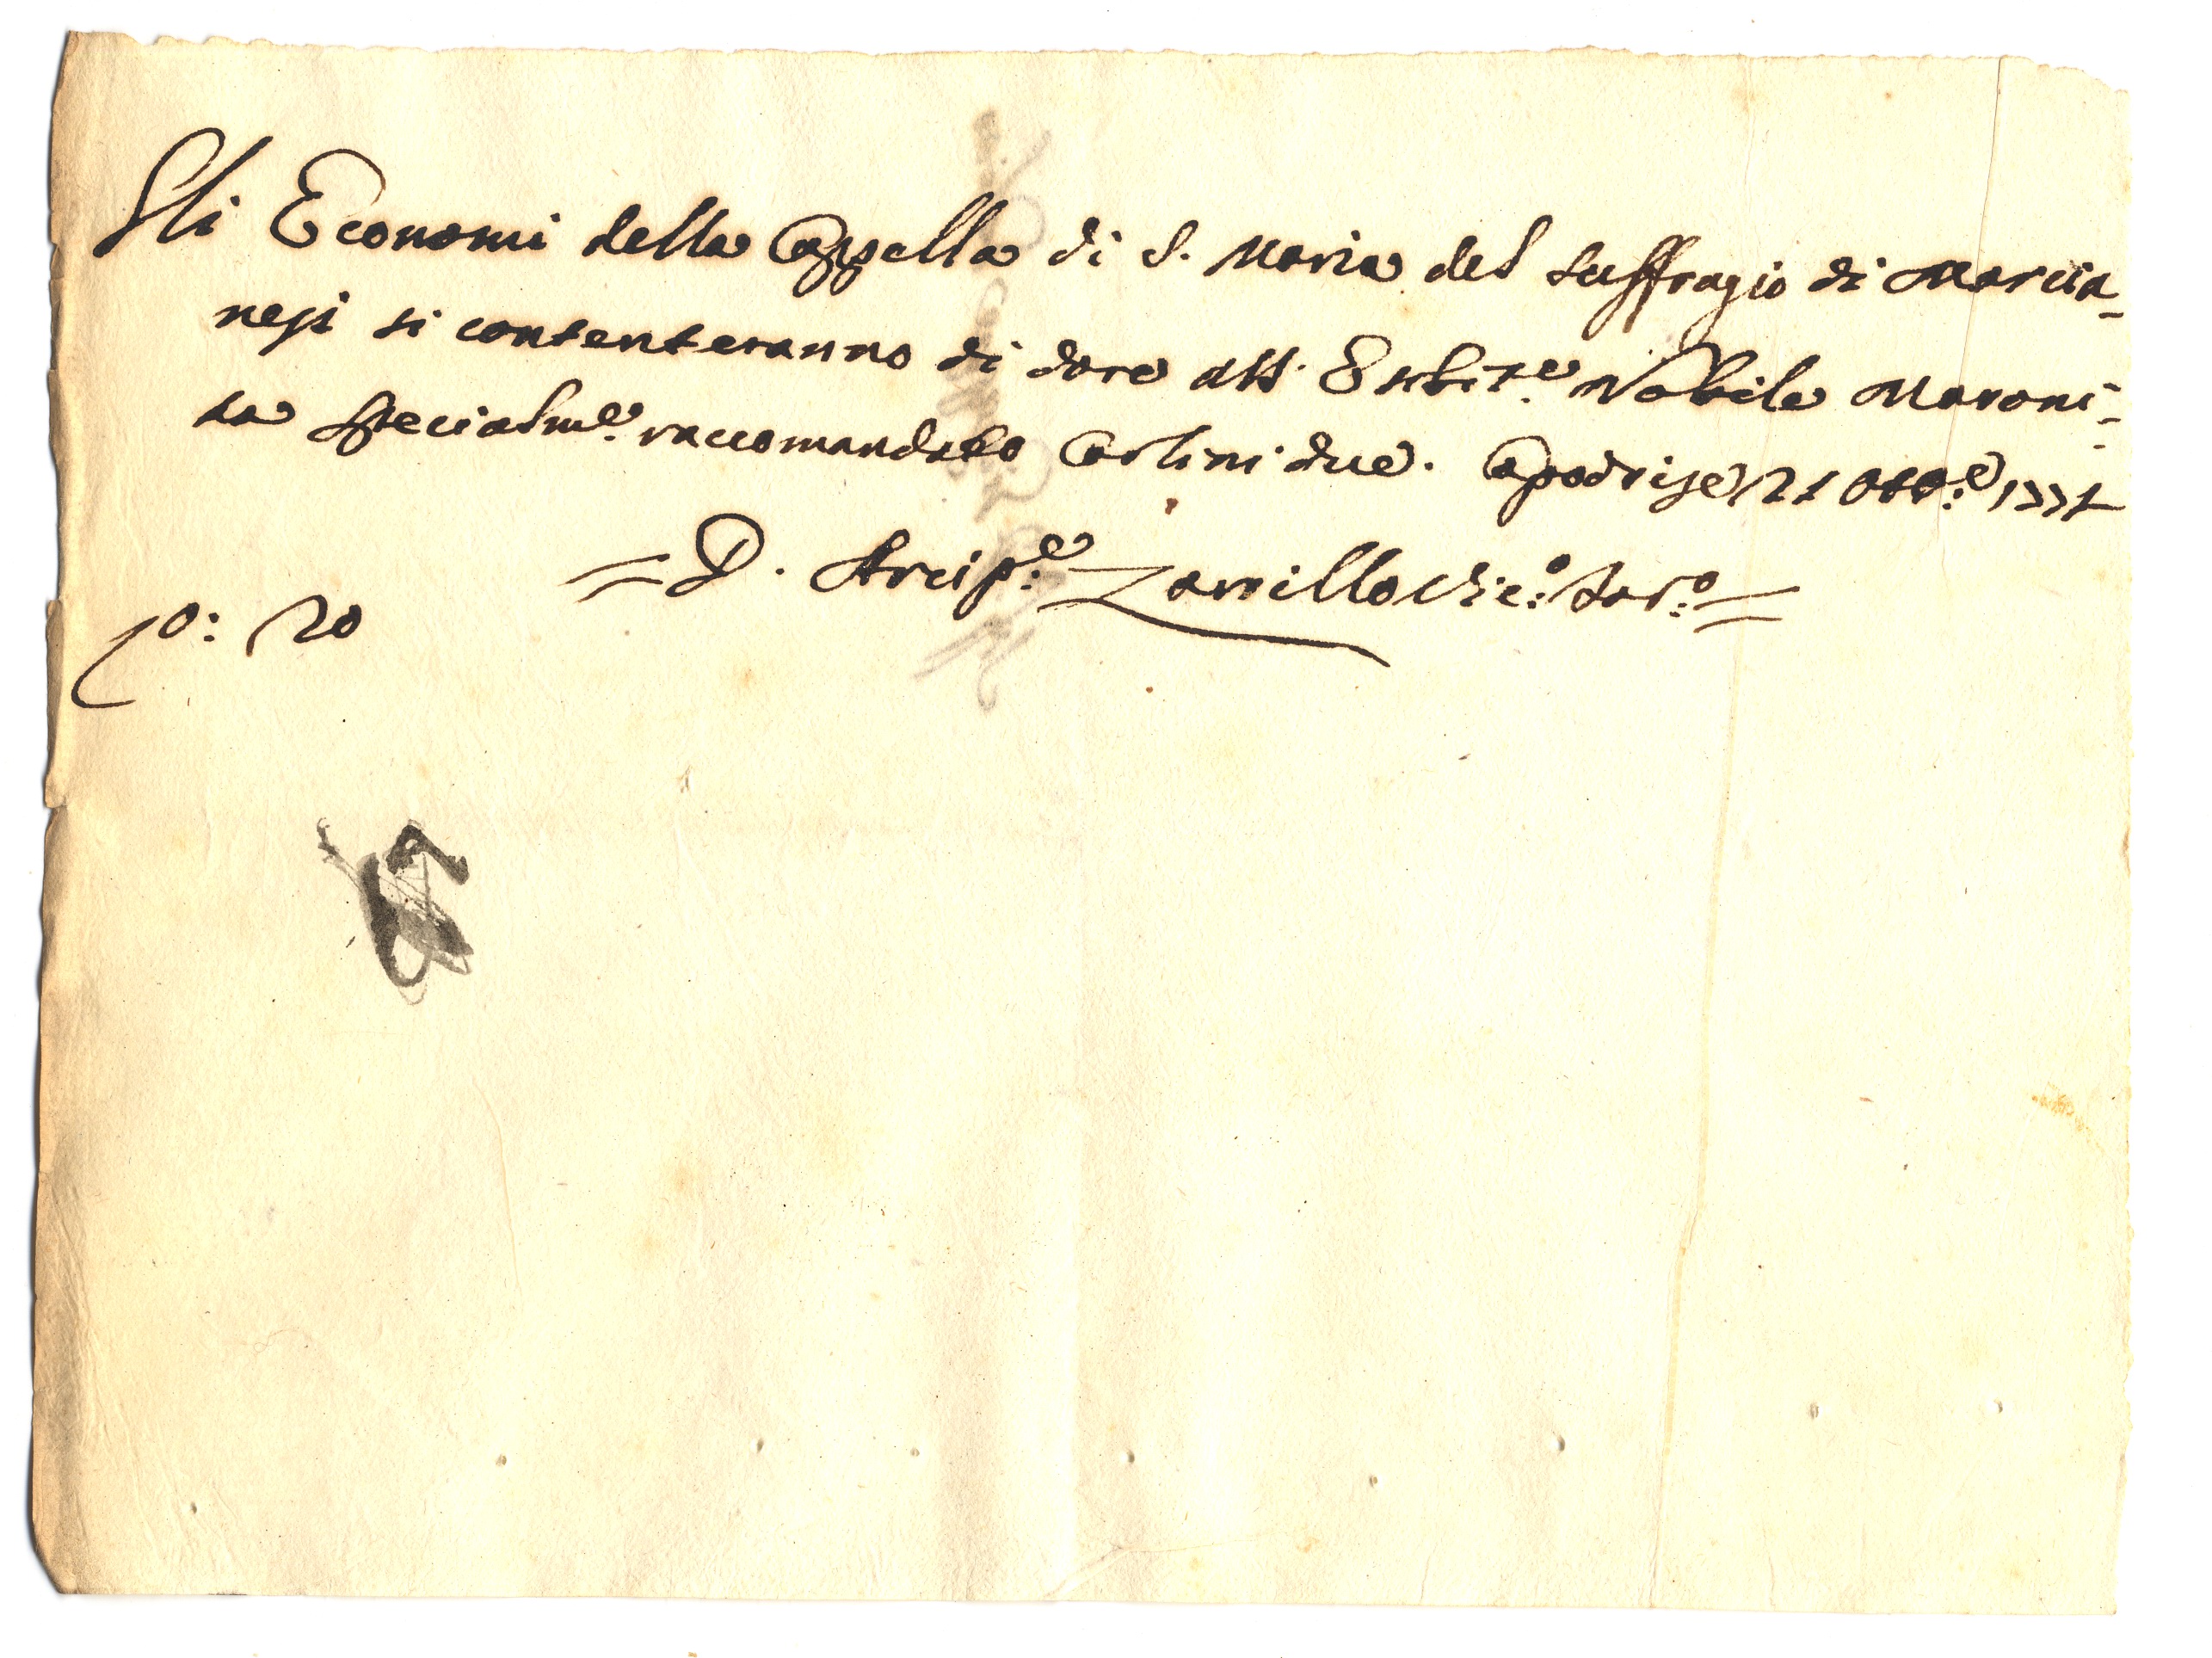 Gli Economi della Cappella di S. Maria del Suffragio di Marcia-
nesi si contenteranno di dare all' Esibit.e Nobile Maroni-
ta specialm.e raccomandato Carlini due. Capodrise 21 Ott.e 1771
= D. Arcip.e Zarrillo Vic.o For.o =
20